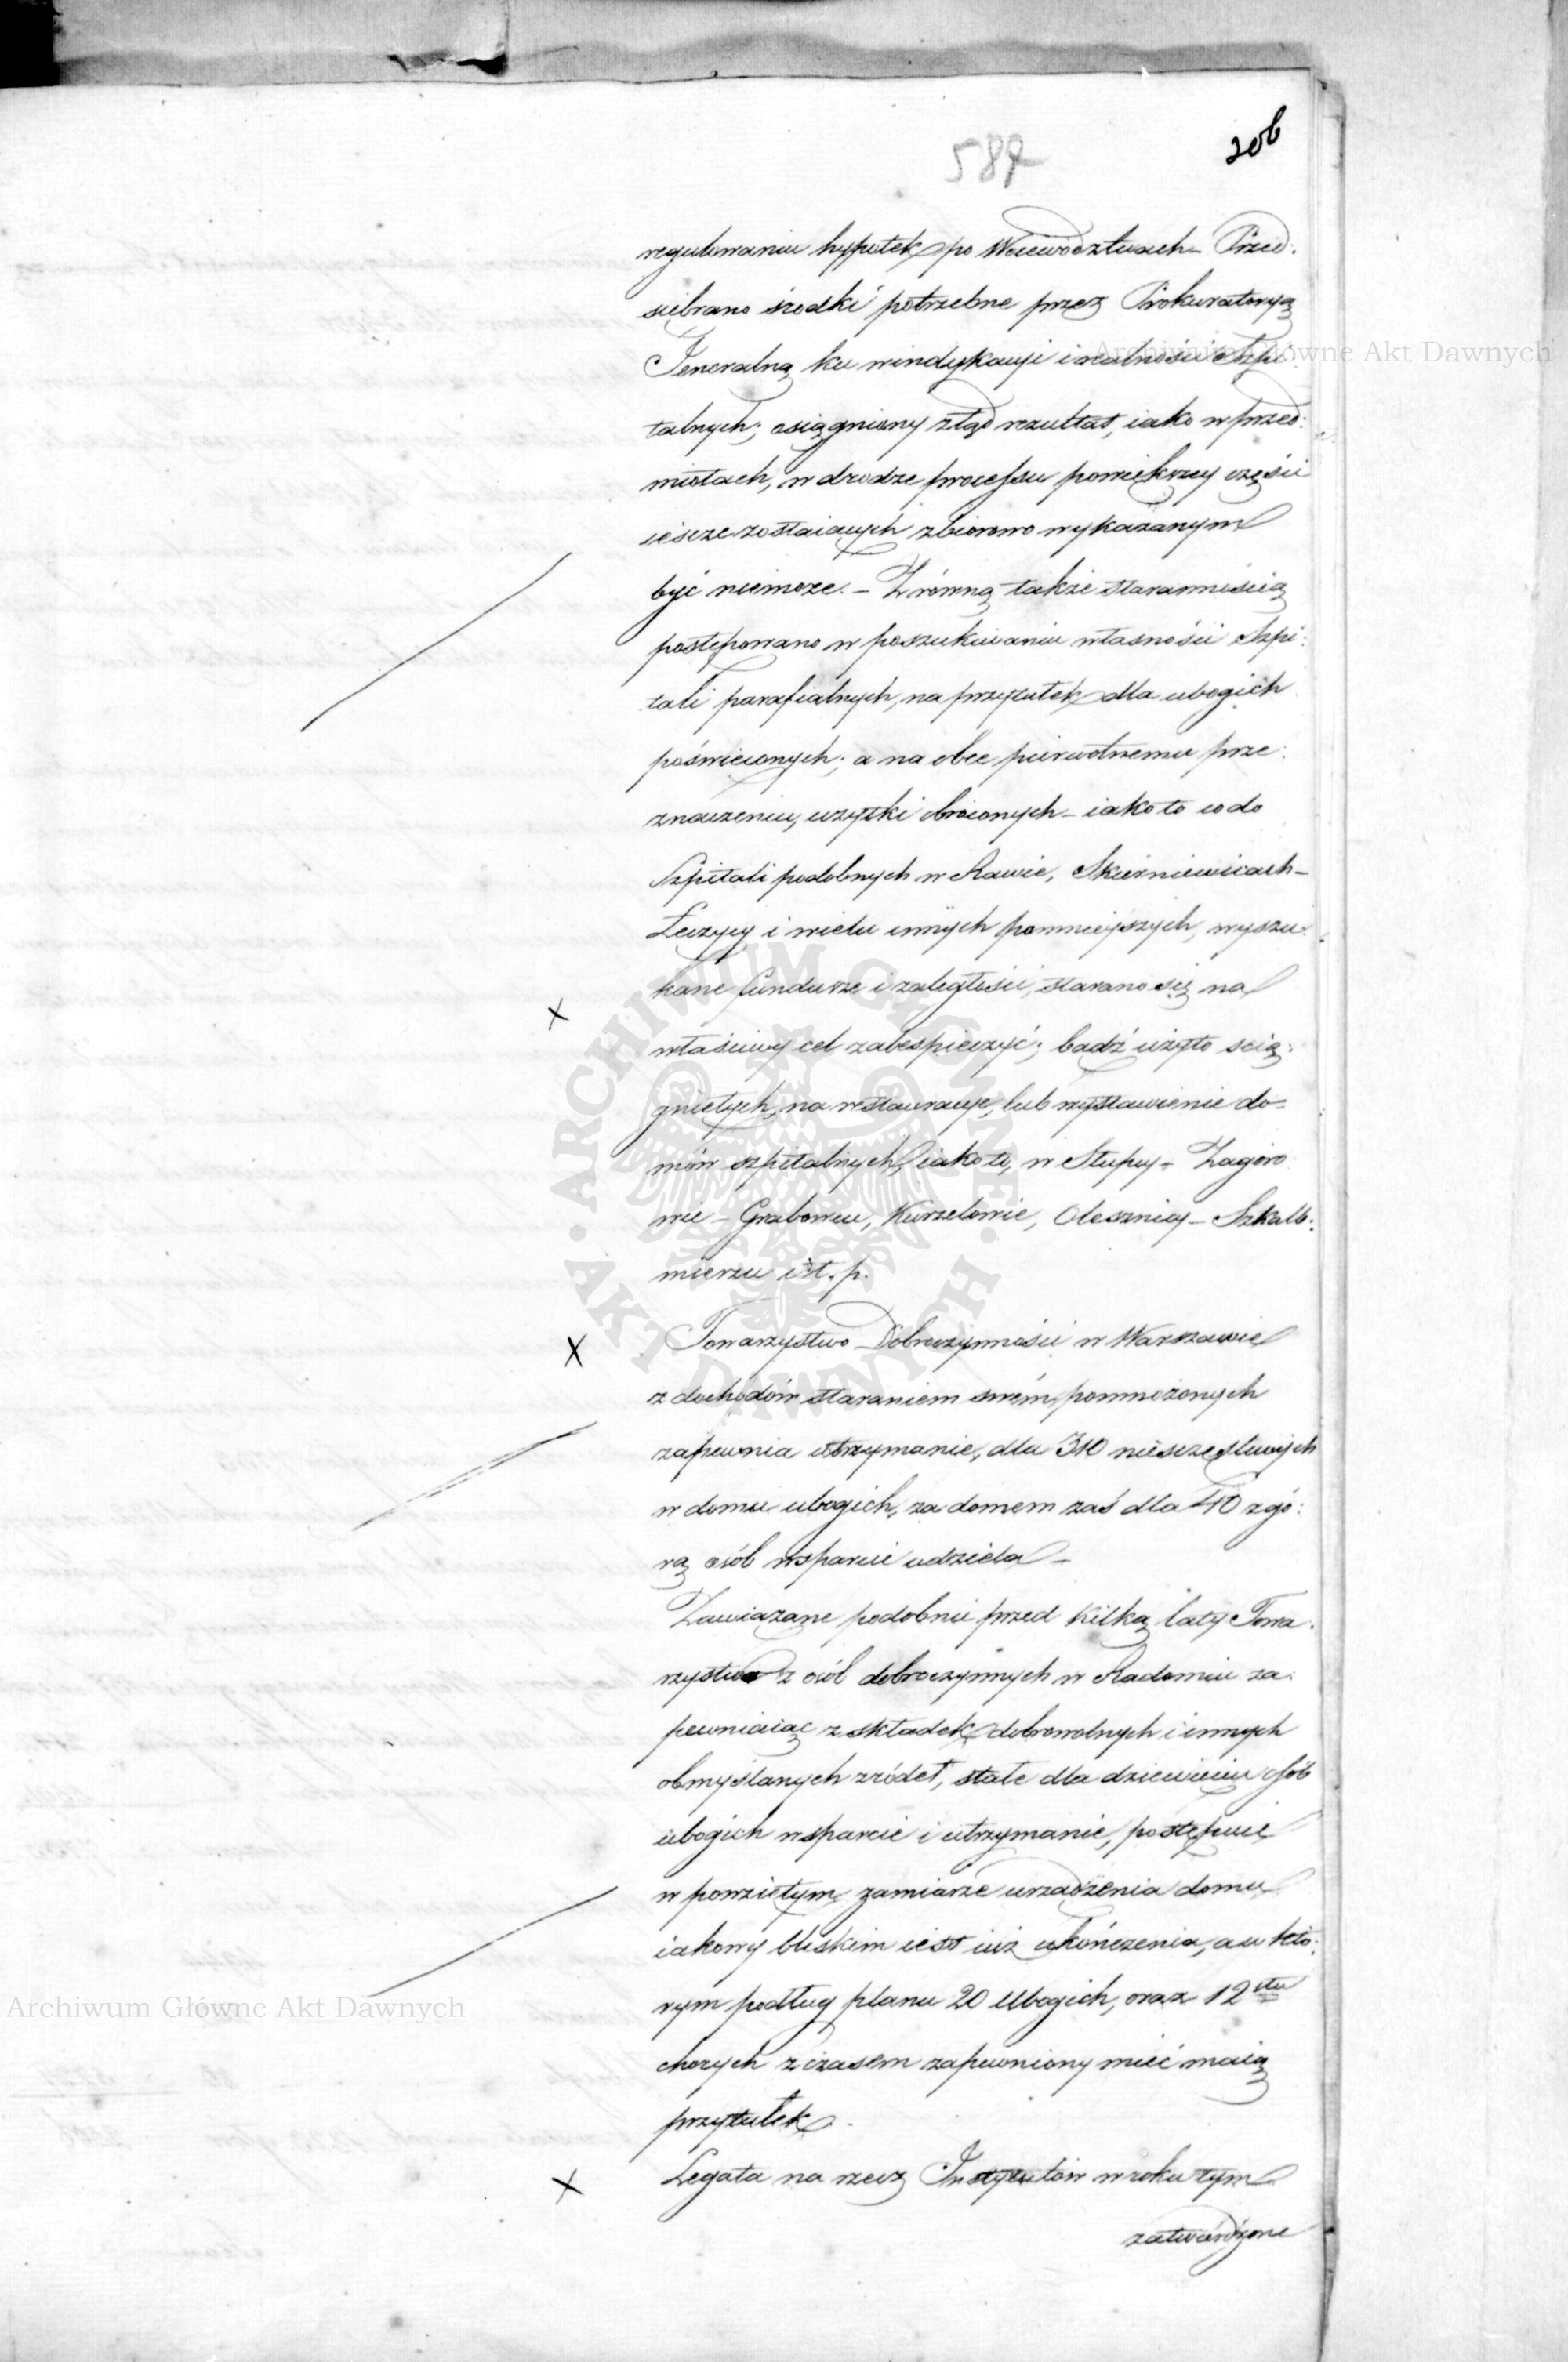 587
206
regulowaniu hypotek po Woiewodztwach – Przed:
siębrano środki potrzebne przez Prokuratoryą
Jeneralną ku windykacyi i realności Szpi:
talnych; osiągniony ztąd rezultat, iako w przed:
miotach, w drodze processu powiększey części
ieszcze zostaiących zbiorowo wykazanym
być niemoze. – Z równą także starannością
postępowano w poszukiwaniu własności Szpi:
tali parafialnych, na przytułek dla ubogich
poświęconych; a na obce pierwotnemu prze:
znaczeniu, użytki obróconych – iako to co do
Szpitali podobnych w Rawie, Skierniewicach –
Łęczycy i wielu innych pomnieyszych, wyszu:
kane fundusze i zaległości, starano się na
właściwy cel zabespieczyć; bądź użyto ścią:
gniętych, na restauracye, lub wystawienie do=
mów szpitalnych, iako to, w Słupcy – Zagóro:
wie – Grabowcu, Kurzelowie, Olesznicy – Szkalb:
mierzu i t. p.
Towarzystwo Dobroczynności w Warszawie
z dochodów staraniem swém pomnożonych
zapewnia utrzymanie, dla 310 nieszczęsliwych
w domu ubogich, za domem zaś dla 410 zgó:
rą osób wsparcie udziela –
Zawiązane podobnie przed kilką laty Towa:
rzystwo z osób dobroczynnych w Radomiu za:
pewniaiąc z składek dobrowolnych i innych
obmyślanych zródeł, stałe dla dziewięciu osób
ubogich wsparcie i utrzymanie, postępuie
w powziętym zamiarze urządzenia domu
iakowy bliskim iest iuż ukończenia, a w któ:
rym podług planu 20 Ubogich, oraz 12stu
chorych z czasem zapewniony mieć maią
przytułek.
Legata na rzecz Instytutów w roku tym
zatwierdzone
Archiwum Główne Akt Dawnych
Archiwum Główne Akt Dawnych
ARCHIWUM GŁÓWNE AKT DAWNYCH